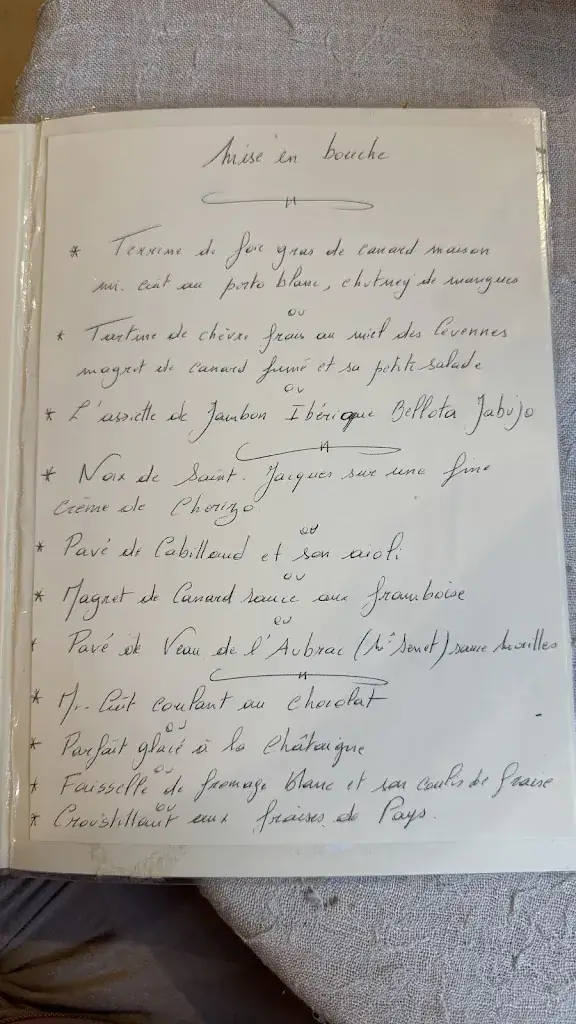 Mise en bouche
* Terrine de foie gras de canard maison
mi-cuit au porto blanc, chutney de mangues
ou
* Tartine de chèvre frais au miel des Cévennes
magret de canard fumé et sa petite salade
ou
* L'assiette de Jambon Ibérique Bellota Jabujo
* Noix de Saint-Jacques sur une fine
crème de Chorizo
ou
* Pavé de Cabillaud et son aioli
ou
* Magret de Canard sauce aux framboise
ou
* Pavé de Veau de l'Aubrac (Mr Senet) sauce morilles
* Mi-Cuit coulant au chocolat
ou
* Parfait glacé à la châtaigne
ou
* Faisselle de fromage blanc et son coulis de fraise
ou
* Croustillant aux fraises de Pays.